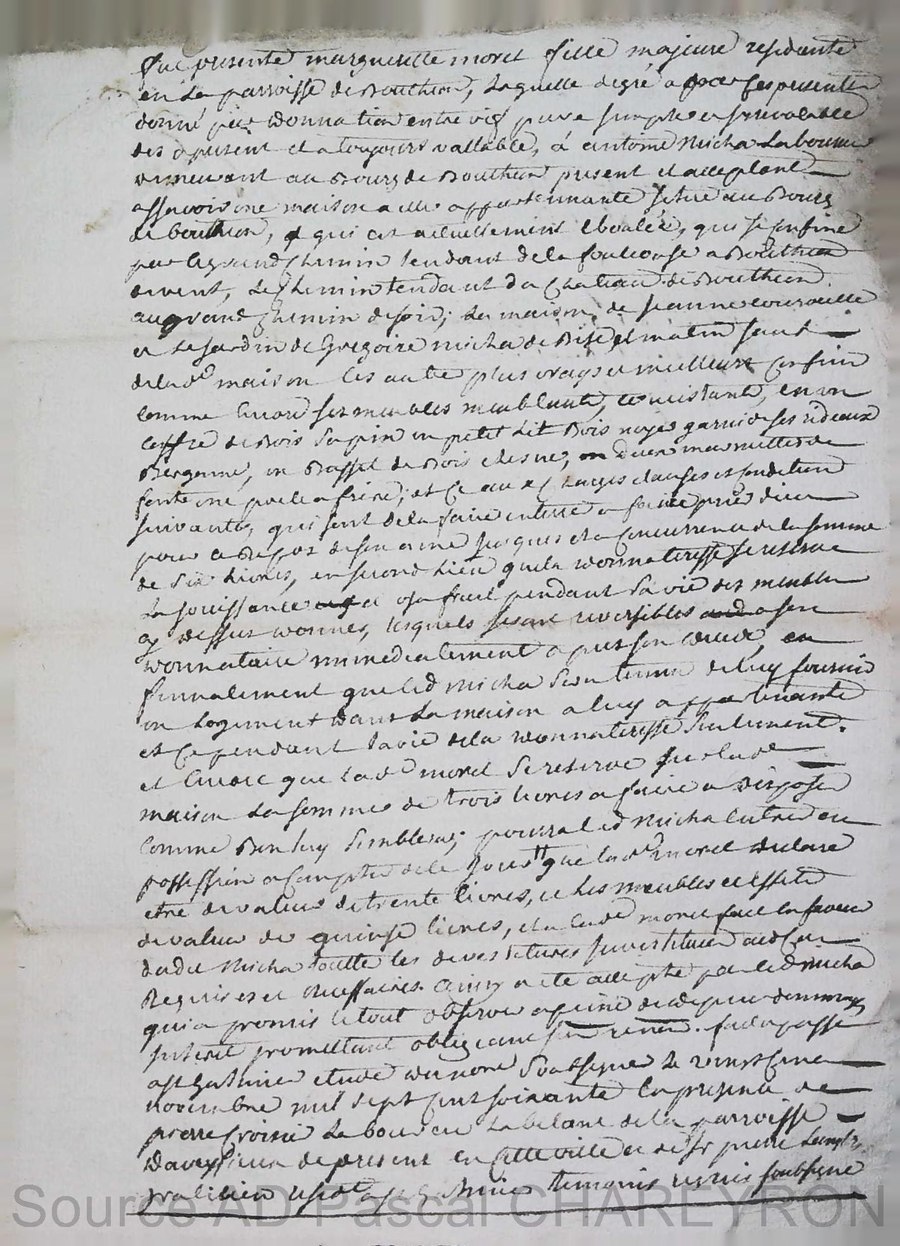 fut presente margueritte moret fille majeure residante
en la parroisse de Bouthion, laquelle de gré a par ses presentes
donné par donnation entre vifs pure simple et irrevocable
des a present et a toujours vallable, á antoine Micha laboureur
demeurant au Bourg de Bouthion present et acceptant
assavoir une maison a elle appartennante scitué au Bourg
de bouthion, qui est actuellement eboulée, qui se confine
par le grand chemin tendant de la fouloose a Bouthion
de vent, le chemin tendant du Chateau de Bouthion
au grand chemin de soir; la maison de jeanne
et le jardin de Gregoire micha de Bise et matin sauf
de lad.e maison les autre plus vrays et meilleurs confins
comme encore ses meubles meublants, consistants, en un
coffre de Bois sapin un petit lit Bois noyer garni de ses rideaux
Bergamme, un Bassel de Bois chesne, deux marmittes de
fonte une poelle a frire; et ce aux charges clauses et condition
suivantes, qui sont de la faire enterré et faire prier dieu
pour le Repos de son ame jusques et a concurrence de la somme
de six livres, en second lieu que la donnateresse se reserve
la jouissance et usufruit pendant sa vie des meubles
cy dessus donnés, lesquels seront reversibles a son
donnataire immediatement apres son deces, et
finnalement que led Micha sera tenu de luy fournir
un logement dans la maison a luy appartenante
et ce pendant la vie de la donnateresse seulement.
et encore que lad.e moret se reserve sur lad.e
maison la somme de trois livres a faire a disposer
comme Bon luy semblera; pourra led Micha entrer en
possession a compter de ce jour.d'h que lad.e moret declare
etre de valeur de trente livres, et les meubles et effets
de valeur de quinse livres, et a lad.e moret fait en faveur
dudit Micha toutte les devestitures investitures au cas
Requises et necessaires. Ainsy a ete accepté par led Micha
qui a promis le tout observer a peine de tous depens dommages
interet promettant obligeant renon. fait et passé
a st Galmier etude du nore soussigne le vingt cinq
novembre mil sept cent soixante en presence de
pierre Croisié laboureur de la parroisse
d'aveysieux de present en cette ville et de Sr pierre
praticien resid.t a st Galmier temoins requis soubsigné
Source AD Pascal CHAREYRON